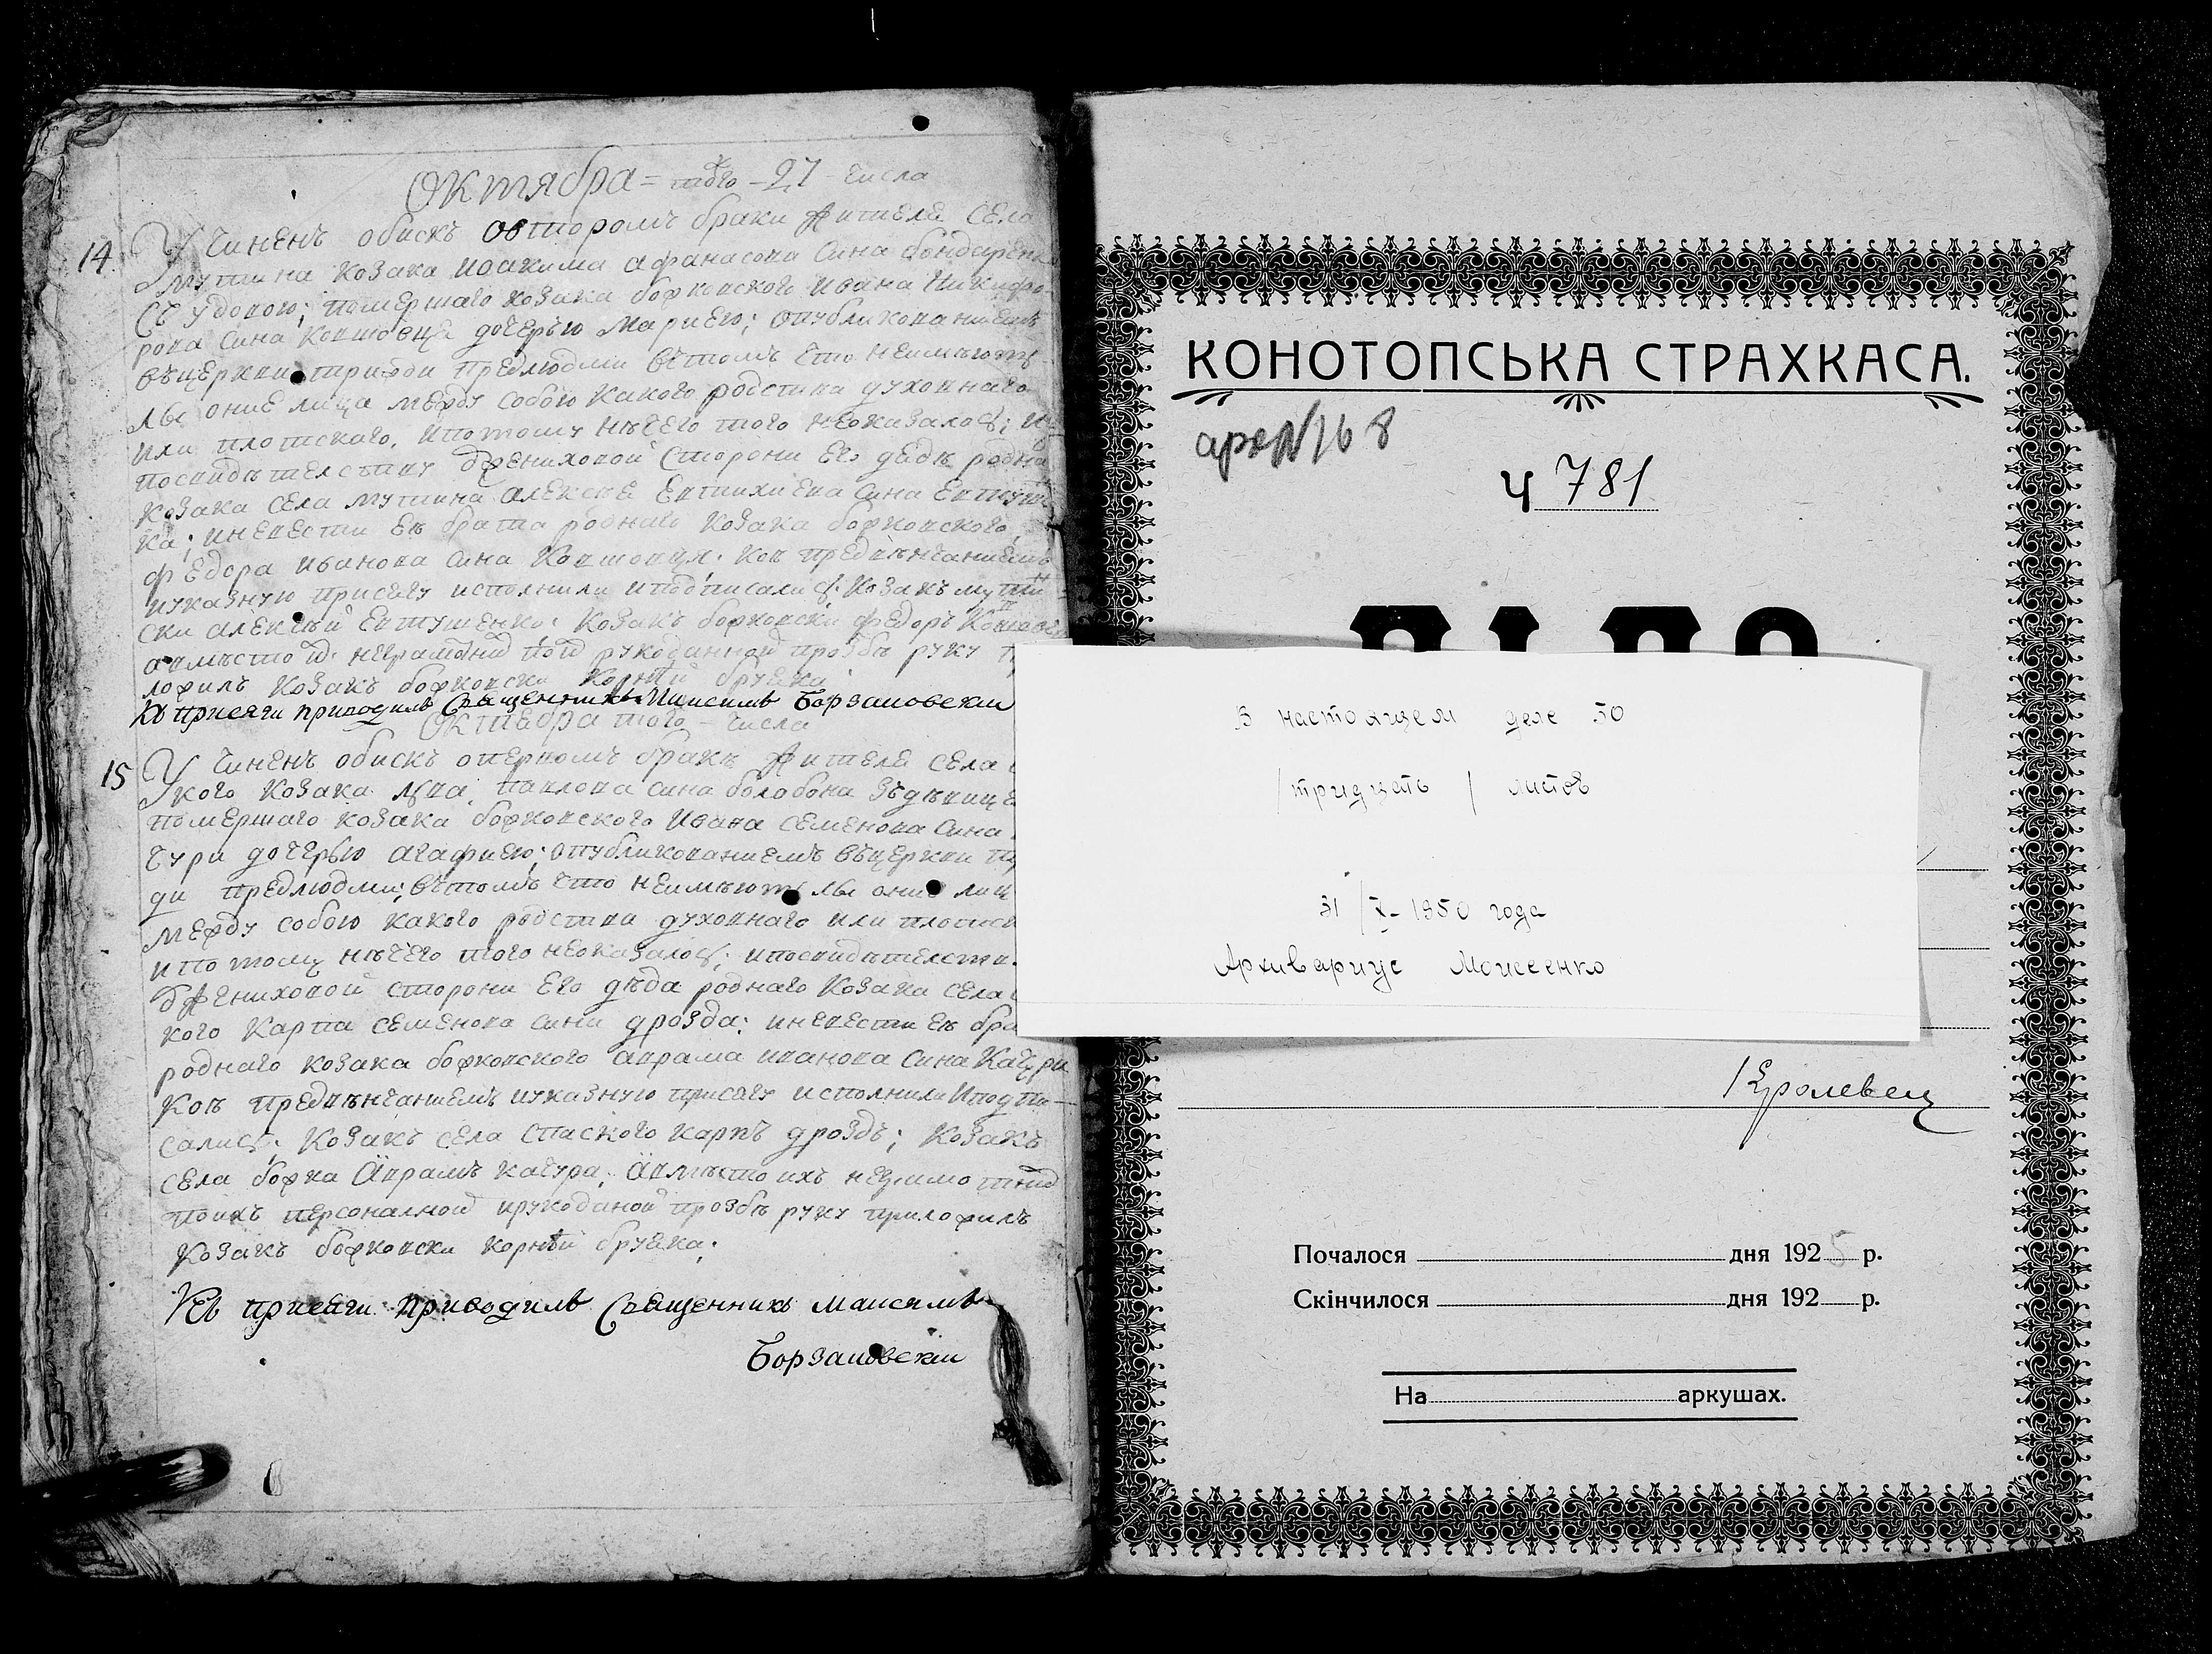 Октября = того – 27 числа
14. Учиненъ обискъ овторомъ браки жителя села
мутина козака иоакима афанасова сина бондаренк
съ удовою; помершаго козака божковского ивана Никифо
рова сина Ковшовца дочерью Мариею; опубликованиемъ
въцеркви трижди предлюдми вътомъ что неимеютъ
лы оние лица между собою какого родства духовнаго
или плотскаго. ипотому нѣчего того неоказалось;
посвидѣтелству
козака села мутина алексея Евтихиева сина
ка; иневести еѣ брата роднаго козака божковского
федора иванова сина Ковшовца. Кои предвѣнчаниемъ
иуказную присягу исполнили иподписались. Козакъ
ски алексѣй Евтушенко: Козакъ божковски федоръ
рукоданной прозбѣ руку
ложилъ козакъ божковски Корнѣй бруйка
Къ присяги приводилъ Священникъ Максимъ Борзаковски
Октября того – числа
15 Учиненъ обискъ опервомъ бракѣ жителя села
кого козака павлова сина болобона
помершаго козака божковского ивана семенова сина
чури дочерью агафиею; опубликованиемъ въцеркви
ди предлюдми; вътомъ что неимѣютъ лы оние лиц
между собою какого родства духовнаго или плотск
ипотому нѣчего того неоказалось; ипосвидѣтелств
бжениховой сторони его дѣда роднаго козака села
кого Карпа семенова сини дрозда; иневести еѣ бра
роднаго козака божковского аврама иванова сина Качури
Кои предвѣнчаниемъ иуказную присягу исполнили Иподпи–
сались; Козакъ села спаского карпъ дроздъ; Козакъ
села божка Аврамъ качура; Авмѣсто ихъ
поихъ персоналной ирукоданой прозбѣ руку приложилъ
Козакъ божковски корнѣй бруйка;
Къ присяги приводилъ Священникъ Максимъ
Борзаковски
КОНОТОПСЬКА СТРАХКАСА.
Ч 781
В настоящем деле 30
/тридцать/ листов
31/X-1950 года
Архивариус Моисеенко
Кролевец
Почалося дня 1925 р.
Скінчилося дня 192 р.
На аркушах.